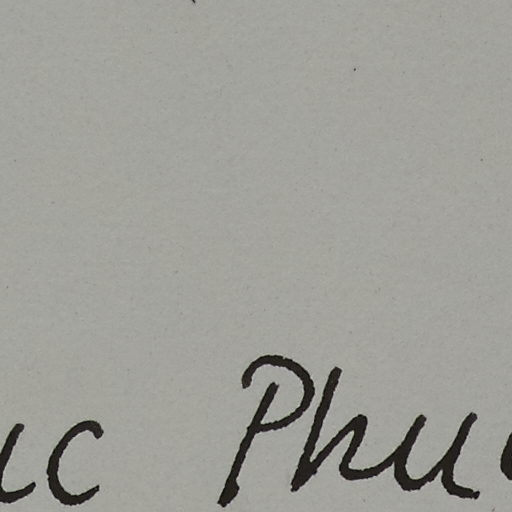 uc Phu